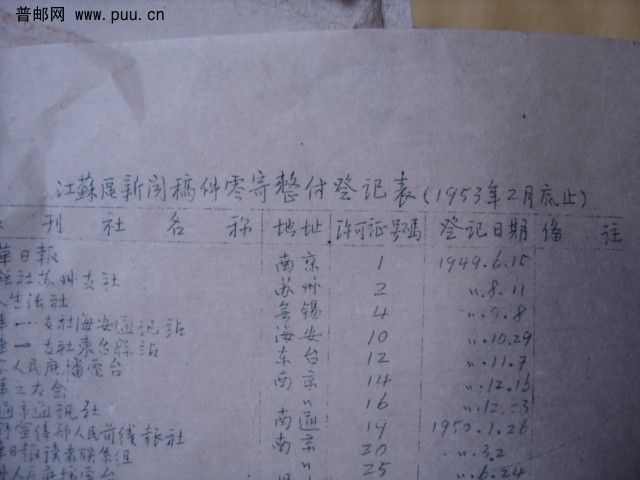 普邮网 www.puu.cn
江蘇區新闻稿件零寄整付登记表(1953年2月底止)
刊社名称 地址 许可证号碼 登记日期 備註
華日報 南京 1 1949.6.15
社苏州支社 苏州 2 〃.8.11
生活社 無锡 4 〃.9.8
一支社海安通讯站 海安 10 〃.10.29
一支社東台縣站 东台 12 〃.11.7
人民廣播電台 南京 14 〃.12.15
友会 〃 16 〃.12.23
通市通讯社 南通 19 1950.1.26
宣传部人民前线報社 南京 20 〃.3.2
日報读者联系组 〃 25 〃.6.24
人民廣播電台